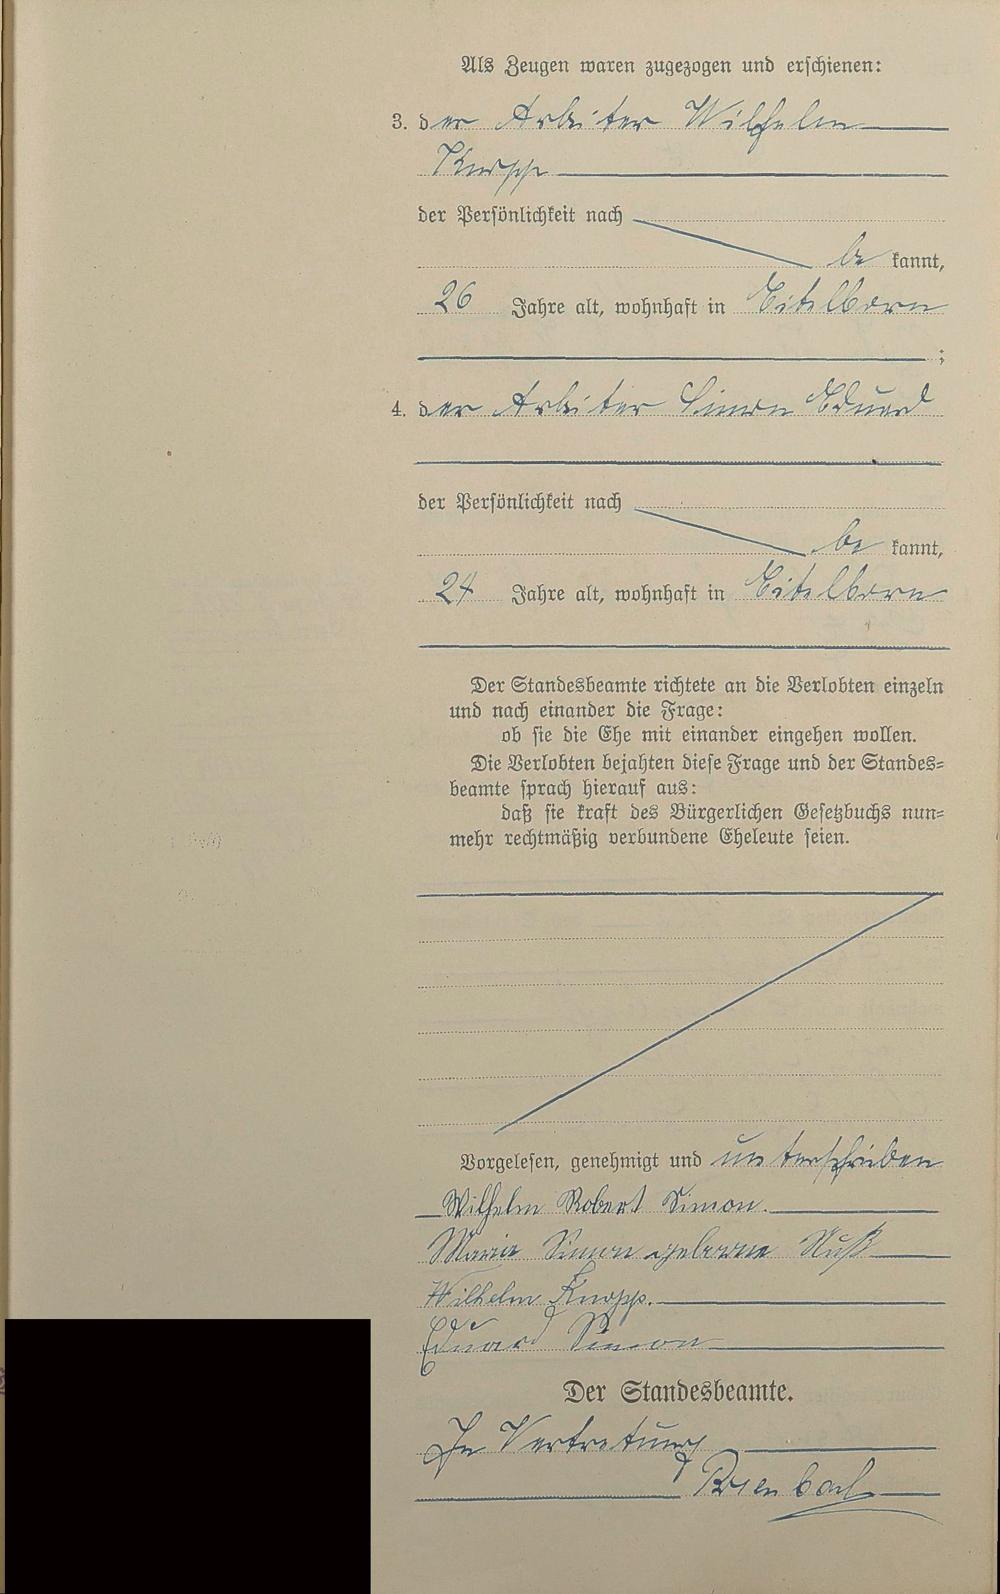 Als Zeugen waren zugezogen und erschienen:
3. der Arbeiter Wilhelm
Knopp
der Persönlichkeit nach
be kannt,
26 Jahre alt, wohnhaft in Eitelborn
;
4. der Arbeiter Simon Eduard
der Persönlichkeit nach
be kannt,
24 Jahre alt, wohnhaft in Eitelborn
Der Standesbeamte richtete an die Verlobten einzeln
und nach einander die Frage:
ob sie die Ehe mit einander eingehen wollen.
Die Verlobten bejahten diese Frage und der Standes=
beamte sprach hierauf aus:
daß sie kraft des Bürgerlichen Gesetzbuchs nun=
mehr rechtmäßig verbundene Eheleute seien.
Vorgelesen, genehmigt und unterschrieben
Wilhelm Robert Simon.
Maria Simon geborne Nuß
Wilhelm Knopp.
Eduard Simon
Der Standesbeamte.
In Vertretung